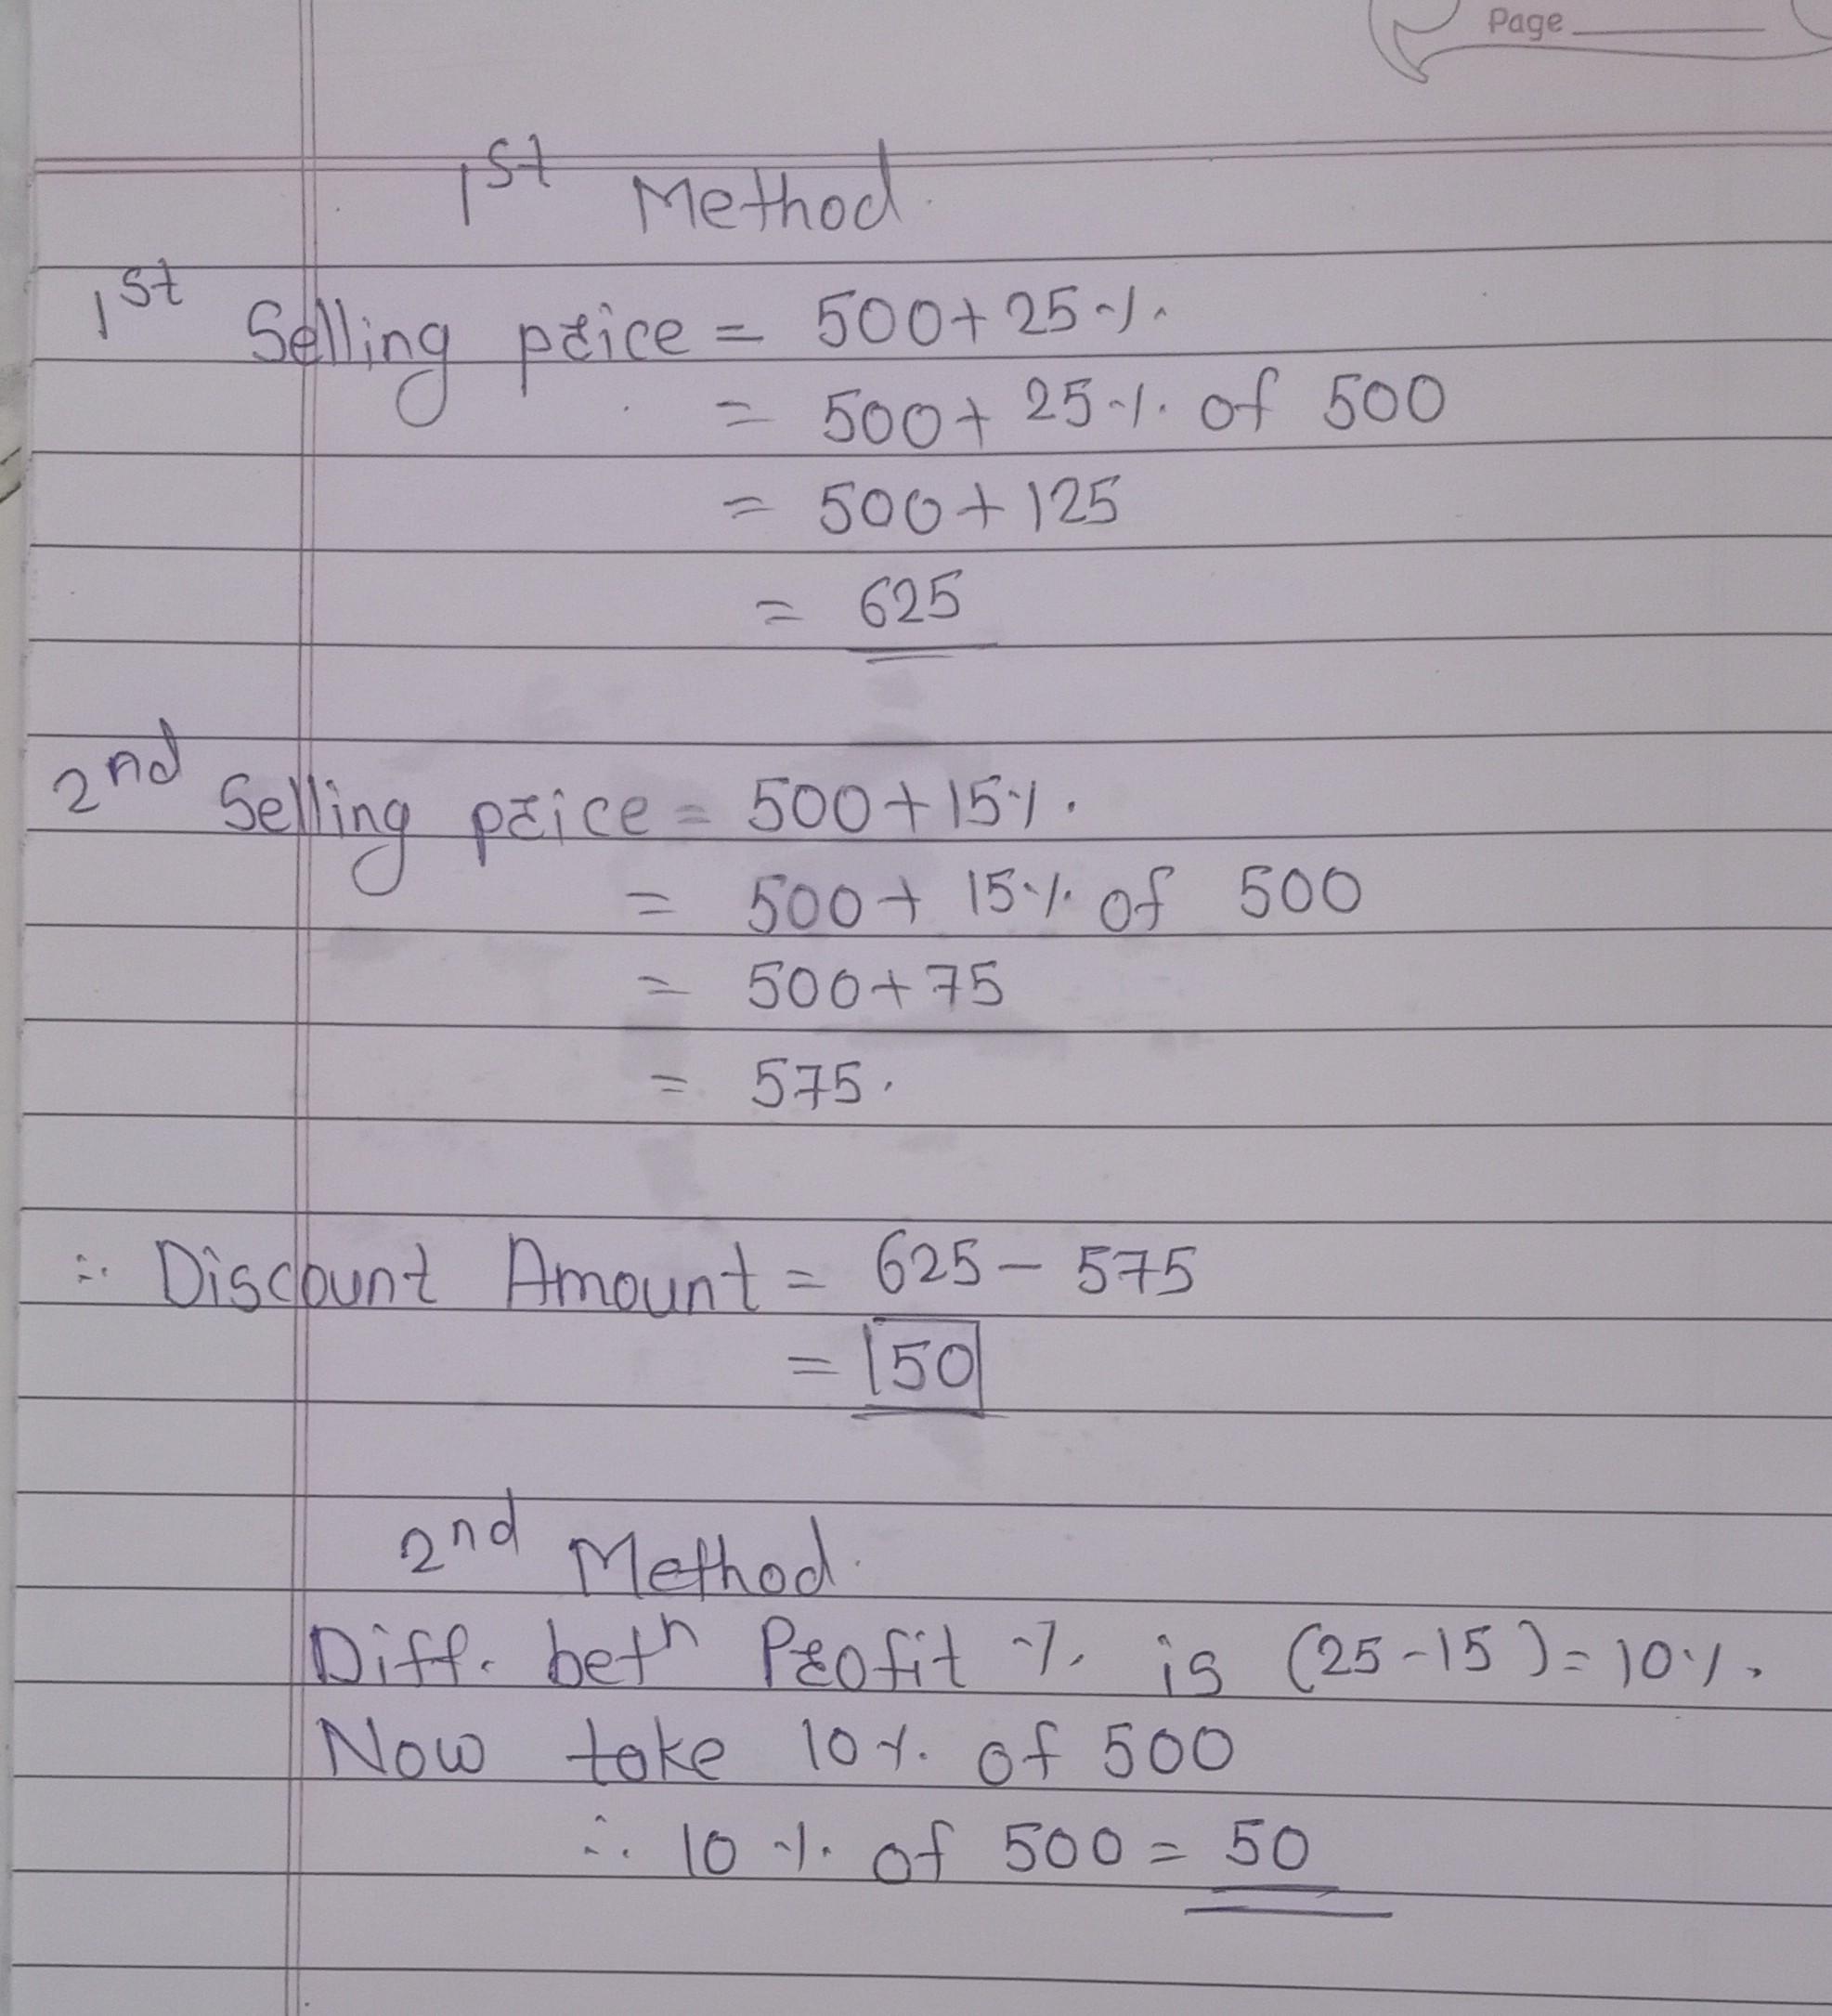 Page
1st Method
1st Selling price = 500+25%.
= 500+ 25% of 500
= 500+125
= 625
2nd Selling price = 500+15%.
= 500+ 15% of 500
= 500+75
= 575.
∴ Discount Amount = 625 - 575
= 50
2nd Method
Diff. betn Profit % is (25-15) = 10%.
Now take 10% of 500
∴ 10% of 500 = 50